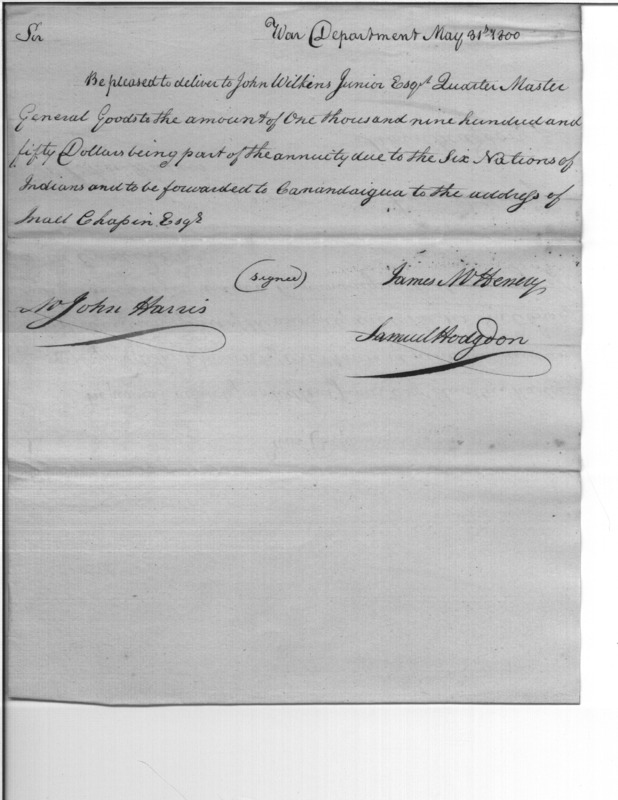 Sir War Department May 31st 1800
Be pleased to deliver to John Wilkens Junior Esqr Quarter Master
General Goods to the amount of One thousand nine hundred and
fifty Dollars being part of the annuity due to the Six Nations of
Indians and to be forwarded to Canandaigua to the address of
Chapin Esqr
(signed) James McHenry
Mr John Harris
Samuel Hodgdon